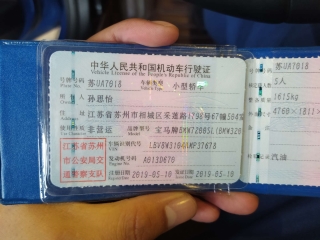 中华人民共和国机动车行驶证
Vehicle License of the People's Republic of China
号牌号码 苏UA7018 车辆类型 小型轿车
所有人 孙思怡
住址 江苏省苏州市相城区采莲路1798号67幢504室
使用性质 非营运 品牌型号 宝马牌BMW7200SL(BMW320
江苏省苏州
市公安局交
通警察支队
车辆识别代号
发动机号码 A613D670
注册日期 2019-05-10 发证日期 2019-05-10
号牌号码 苏UA7018
5人
1615kg
4760×1811×
汽油